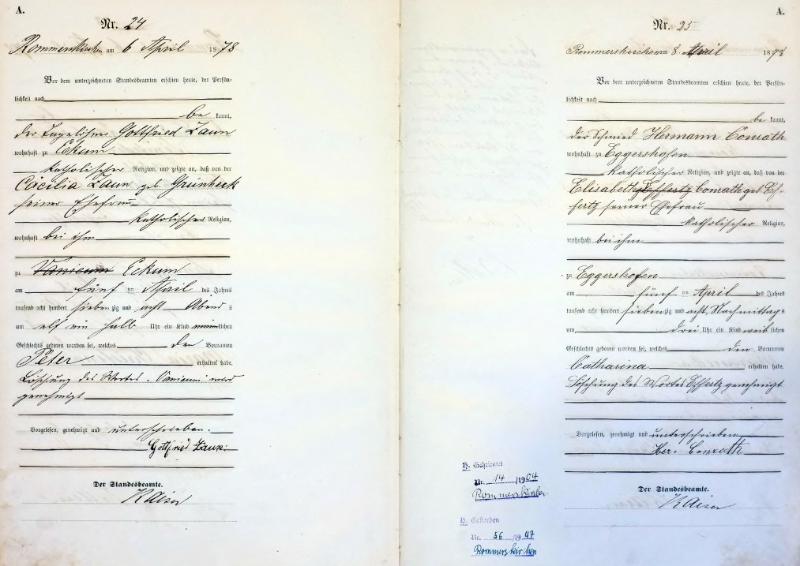 A.
Nr. 24
Rommerskirchen am 6 April 1878
Vor dem unterzeichneten Standesbeamten erschien heute, der Persön-
lichkeit nach
be kannt,
der Tagelöhner Gottfried Zaun
wohnhaft zu Eckum
katholischer Religion, und zeigte an, daß von der
Cäcilia Zaun geb. Grünheck
seiner Ehefrau
katholischer Religion,
wohnhaft bei ihm
zu Vanicum Eckum
am fünf ten April des Jahres
tausend acht hundert siebenzig und acht Abends
um elf ein halb Uhr ein Kind männlichen
Geschlechts geboren worden sei, welches den Vornamen
Peter erhalten habe.
Löschung des Wortes „Vanicum“ wird
genehmigt
Vorgelesen, genehmigt und unterschrieben.
Gottfried Zaun.
Der Standesbeamte.
Kaiser
A.
Nr. 25
Rommerskirchen am 8 April 1878
Vor dem unterzeichneten Standesbeamten erschien heute, der Persön-
lichkeit nach
be kannt,
der Schmied Hermann Conrath
wohnhaft zu Eggershofen
katholischer Religion, und zeigte an, daß von der
Elisabeth Conrath geb. Esch-
seiner Ehefrau
katholischer Religion,
wohnhaft bei ihm
zu Eggershofen
am fünf ten April des Jahres
tausend acht hundert siebenzig und acht Nachmittags
um drei Uhr ein Kind weiblichen
Geschlechts geboren worden sei, welches den Vornamen
Catharina erhalten habe.
Löschung des Wortes genehmigt
Vorgelesen, genehmigt und unterschrieben
Her. Conrath
Der Standesbeamte.
Kaiser
Nr. 14 /1904
Rommerskirchen
Gestorben
Nr. 56 /1947
Rommerskirchen